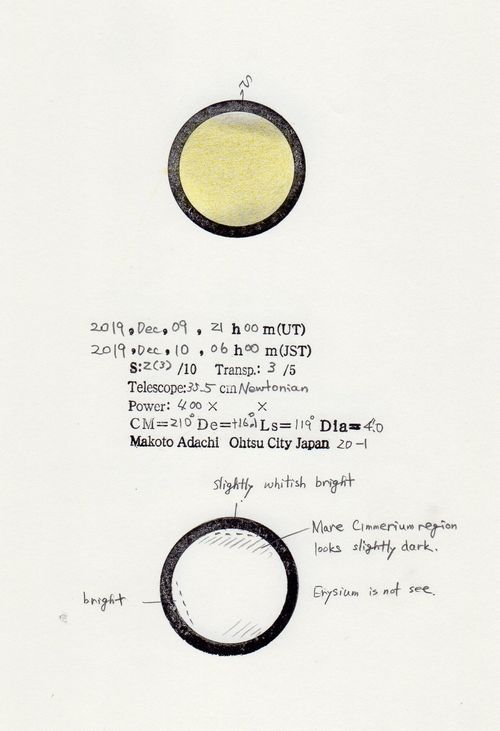 S
2019, Dec, 09, 21 h 00 m(UT)
2019, Dec, 10, 06 h 00 m(JST)
S:2(3) /10 Transp.: 3 /5
Telescope:35.5 cm Newtonian
Power: 400 × ×
CM=210° De=+16.1° Ls=119° Dia=4.0
Makoto Adachi Ohtsu City Japan 20-1
slightly whitish bright
Mare Cimmerium region
looks slightly dark.
bright
Erysium is not see.